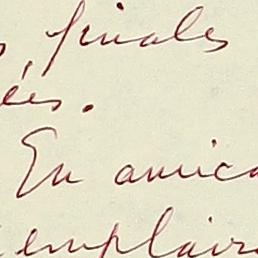 , finales
ées.
En amica
emplair